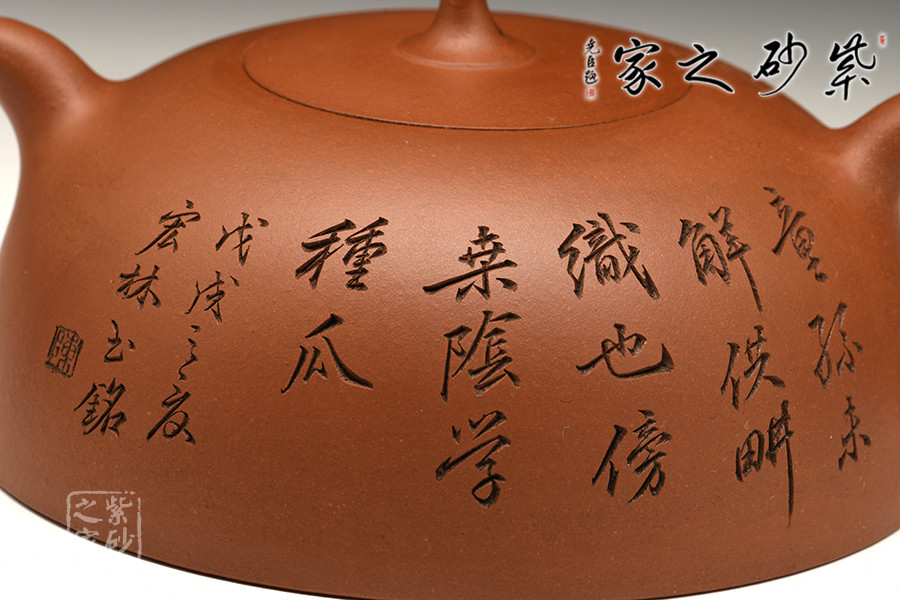 紫砂之家
童孫未
解供畊
織也傍
桒陰学
種瓜
戊戌之夏
宏林书銘
紫砂
之家